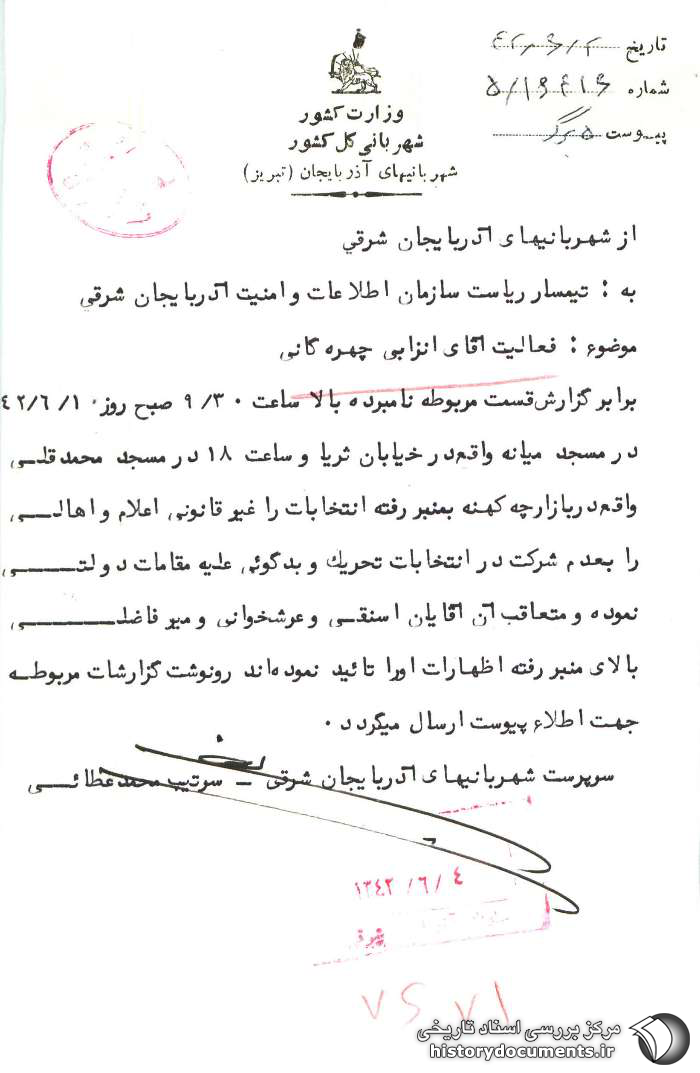 تاریخ ۴۲/۶/۲
شماره ۵/۱۶۴۱۶
پیوست ۵ برگ
وزارت کشور
شهربانی کل کشور
شهربانیهای آذربایجان (تبریز)
از شهربانیهای آذربایجان شرقی
به : تیمسار ریاست سازمان اطلاعات و امنیت آذربایجان شرقی
موضوع : فعالیت آقای انزابی چهره گانی
برابر گزارش قسمت مربوطه نامبرده بالا ساعت ۹/۳۰ صبح روز ۴۲/۶/۱
در مسجد میانه واقع در خیابان ثریا و ساعت ۱۸ در مسجد محمد قلی
واقع در بازارچه کهنه بمنبر رفته انتخابات را غیر قانونی اعلام و اهالی
را بعدم شرکت در انتخابات تحریک و بدگوئی علیه مقامات دولتی
نموده و متعاقب آن آقایان اسنقی و عرشخوانی و میر فاضلی
بالای منبر رفته اظهارات اورا تائید نموده‌اند رونوشت گزارشات مربوطه
جهت اطلاع پیوست ارسال میگردد .
سرپرست شهربانیهای آذربایجان شرقی – سرتیپ محمد عطائی
۱۳۴۲/۶/۴
شرقی
مرکز بررسی اسناد تاریخی
historydocuments.ir